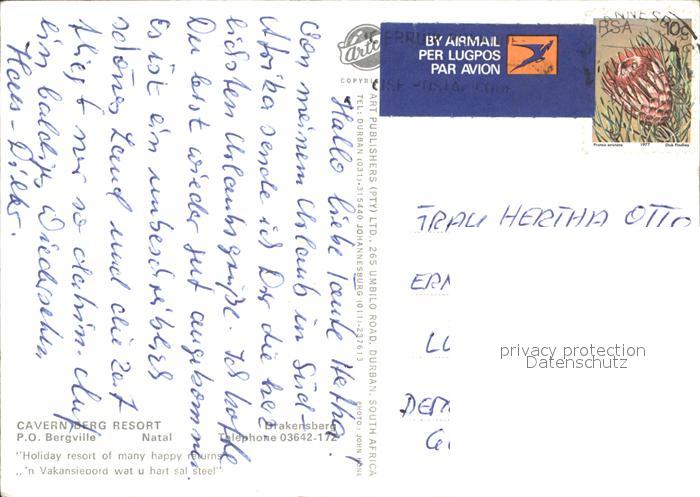 Hallo liebe Tante Hertha,
Von meinem Urlaub in Süd-
Afrika sende ich Dir die herz
lichsten Urlaubsgrüße. Ich hoffe
Du bist wieder gut angekommen.
Es ist ein unbeschreiblich
schönes Land und die Zeit
fliegt nur so dahin. Auf
ein baldiges Wiedersehen
Hans-Dieter.
CAVERN BERG RESORT Drakensberg
P.O. Bergville Natal Telephone 03642-172
"Holiday resort of many happy returns"
„'n Vakansieoord wat u hart sal steel"
Artco
COPYRIGHT
ART PUBLISHERS (PTY) LTD., 265 UMBILO ROAD, DURBAN, SOUTH AFRICA
TEL: DURBAN (031)-315440 JOHANNESBURG (011)-237613
PHOTO: JOHN HONE
BY AIRMAIL
PER LUGPOS
PAR AVION
RSA 10c
Protea 1977 Dick Findlay
FRAU HERTHA OTTO
privacy protection
Datenschutz